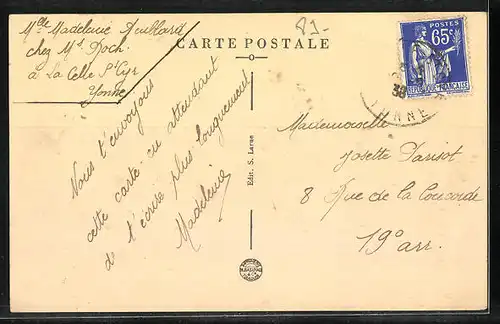 Mlle Madeleine Aeullard
chez Mr Doch.
à La Celle St Cyr
Yonne
81-
CARTE POSTALE
POSTES
65c
RÉPUBLIQUE FRANÇAISE
38
YONNE
Nous t'envoyons
cette carte en attendant
de t'écrire plus longuement
Madeleine
Edit. S. Larue
Mademoiselle
Josette Parisot
8 Rue de la Concorde
19° arr.